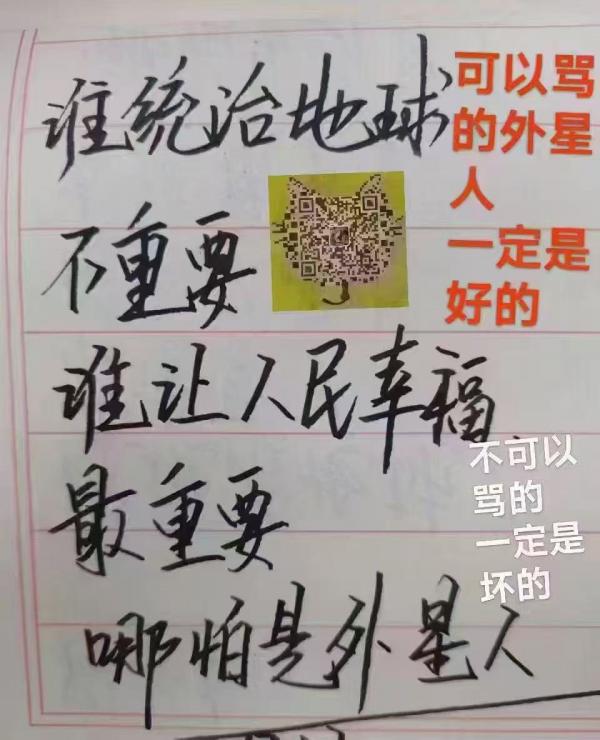 谁统治地球
不重要
谁让人民幸福
最重要
哪怕是外星人
可以骂
的外星
人
一定是
好的
不可以
骂的
一定是
坏的